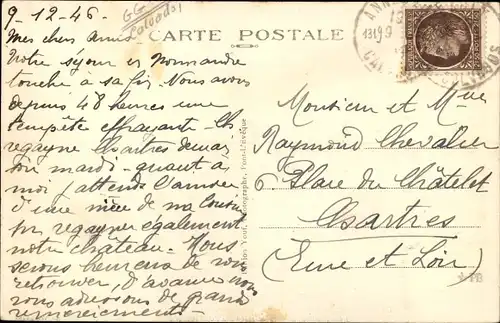 9-12-46-
GG
Calvados
CARTE POSTALE
Mes chers Amis
Notre séjour en Normandie
touche à sa fin. Nous avons
depuis 48 heures une
tempête effrayante. Ch
regagne Chartres demain
soir mardi - quant à
moi j'attends l'arrivée
d'une nièce de ma cousine
pr regagner également
notre château. Nous
serons heureux de vous
retrouver, d'avance nous
vous adressons de grands
remerciements
Monsieur et Mme
Raymond Chevalier
6 Place du Châtelet
Chartres
(Eure et Loir)
Photographe, Pont-l'Évêque